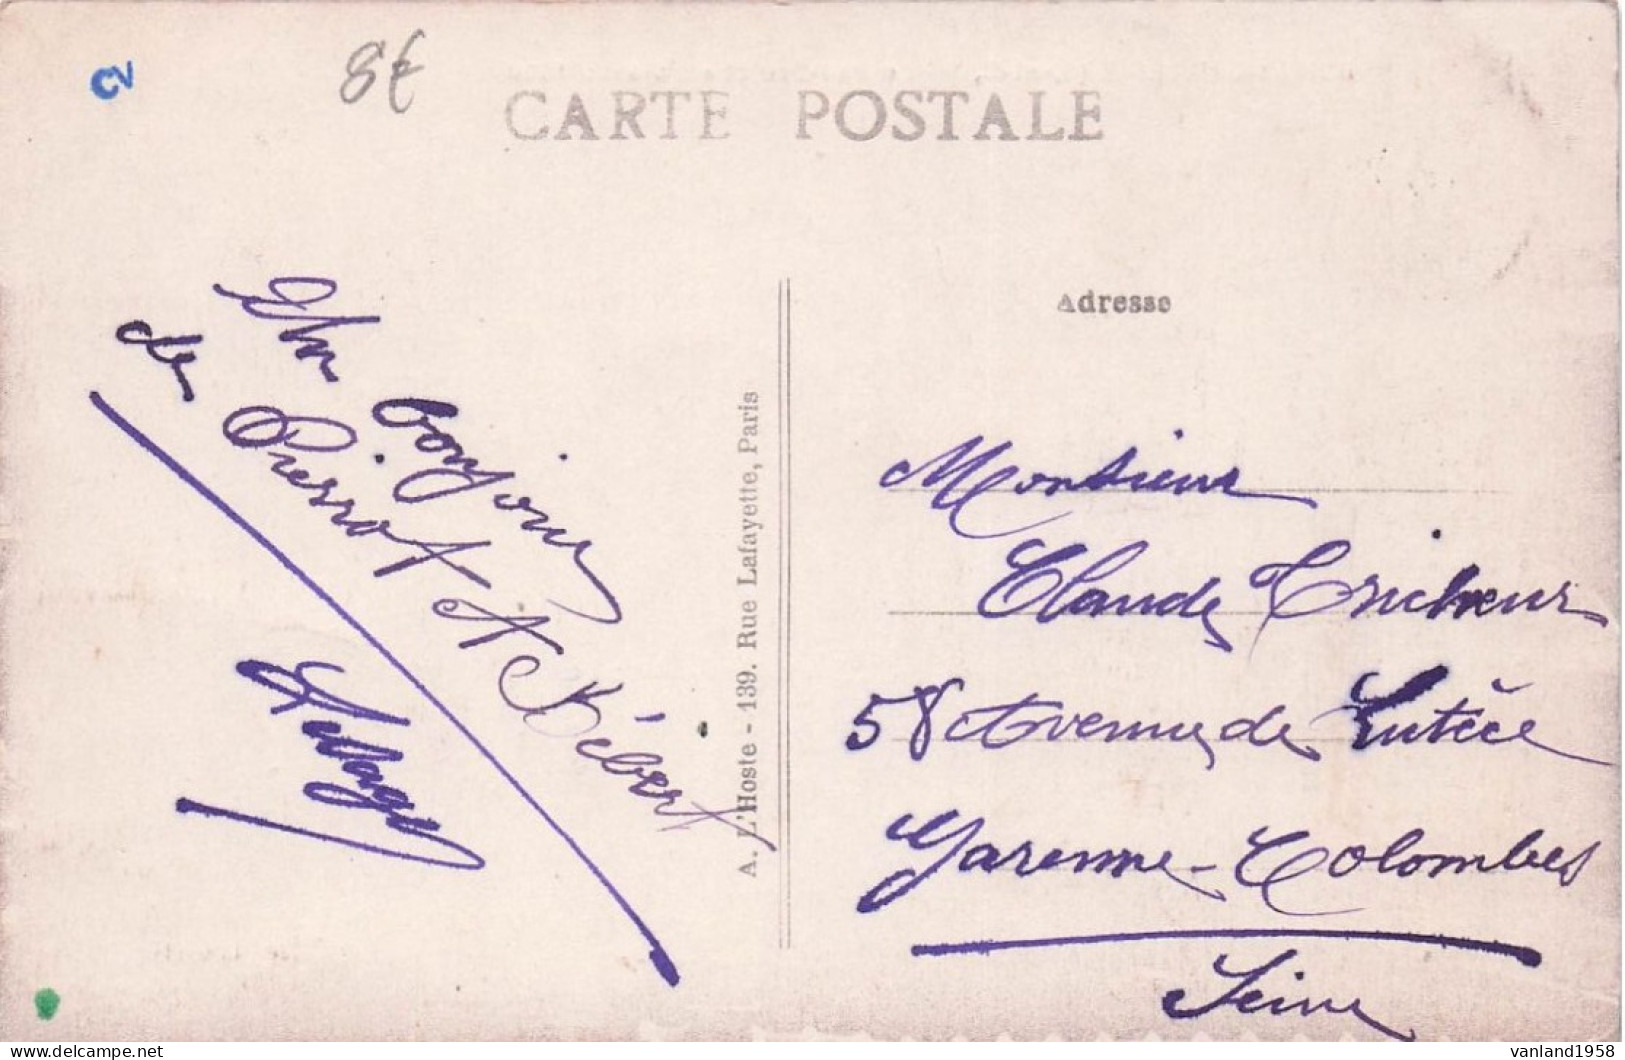 CV
8€
CARTE POSTALE
Un bonjour
de Pierrot & Bébert
A. L'Hoste - 139. Rue Lafayette, Paris
Adresse
Monsieur
Claude Tricheur
58 Avenue de Lutèce
Garenne-Colombes
Seine
vanland1958
delcampe.net